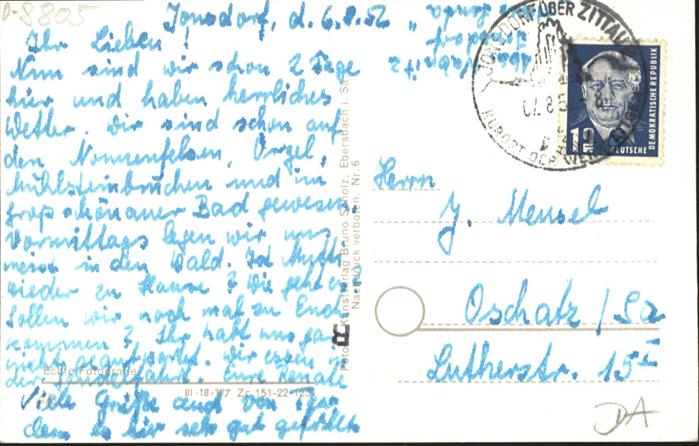 D-8805
Jonsdorf, d. 6.8.52
Ihr Lieben!
Nun sind wir schon 2 Tage
hier und haben herrliches
Wetter. Wir sind schon auf
den Nonnenfelsen, Orgel,
Mühlsteinbrüchen und im
großschönauer Bad gewesen
Vormittags legen wir uns
meist in den Wald. Ist Mutti
wieder zu Hause? Wie geht es
Sollen wir noch mal zu Euch
kommen? Ihr habt uns gar
nicht geantwortet. Wir essen in
der Eure Renate
Viele Grüße auch von
dem es hier sehr gut gefällt
Jonsdorf
JONSDORF ÜBER ZITTAU
KURORT DER
12
DEUTSCHE
DEMOKRATISCHE REPUBLIK
Herrn
J. Mensel
Oschatz/Sa
Lutherstr. 15 I
Kunstverlag Bruno Scholz, Ebersbach i. Sa.
Nachdruck verboten. Nr. 6
Echte Fotografie
III-18-177 Zc 151-22-125
DA